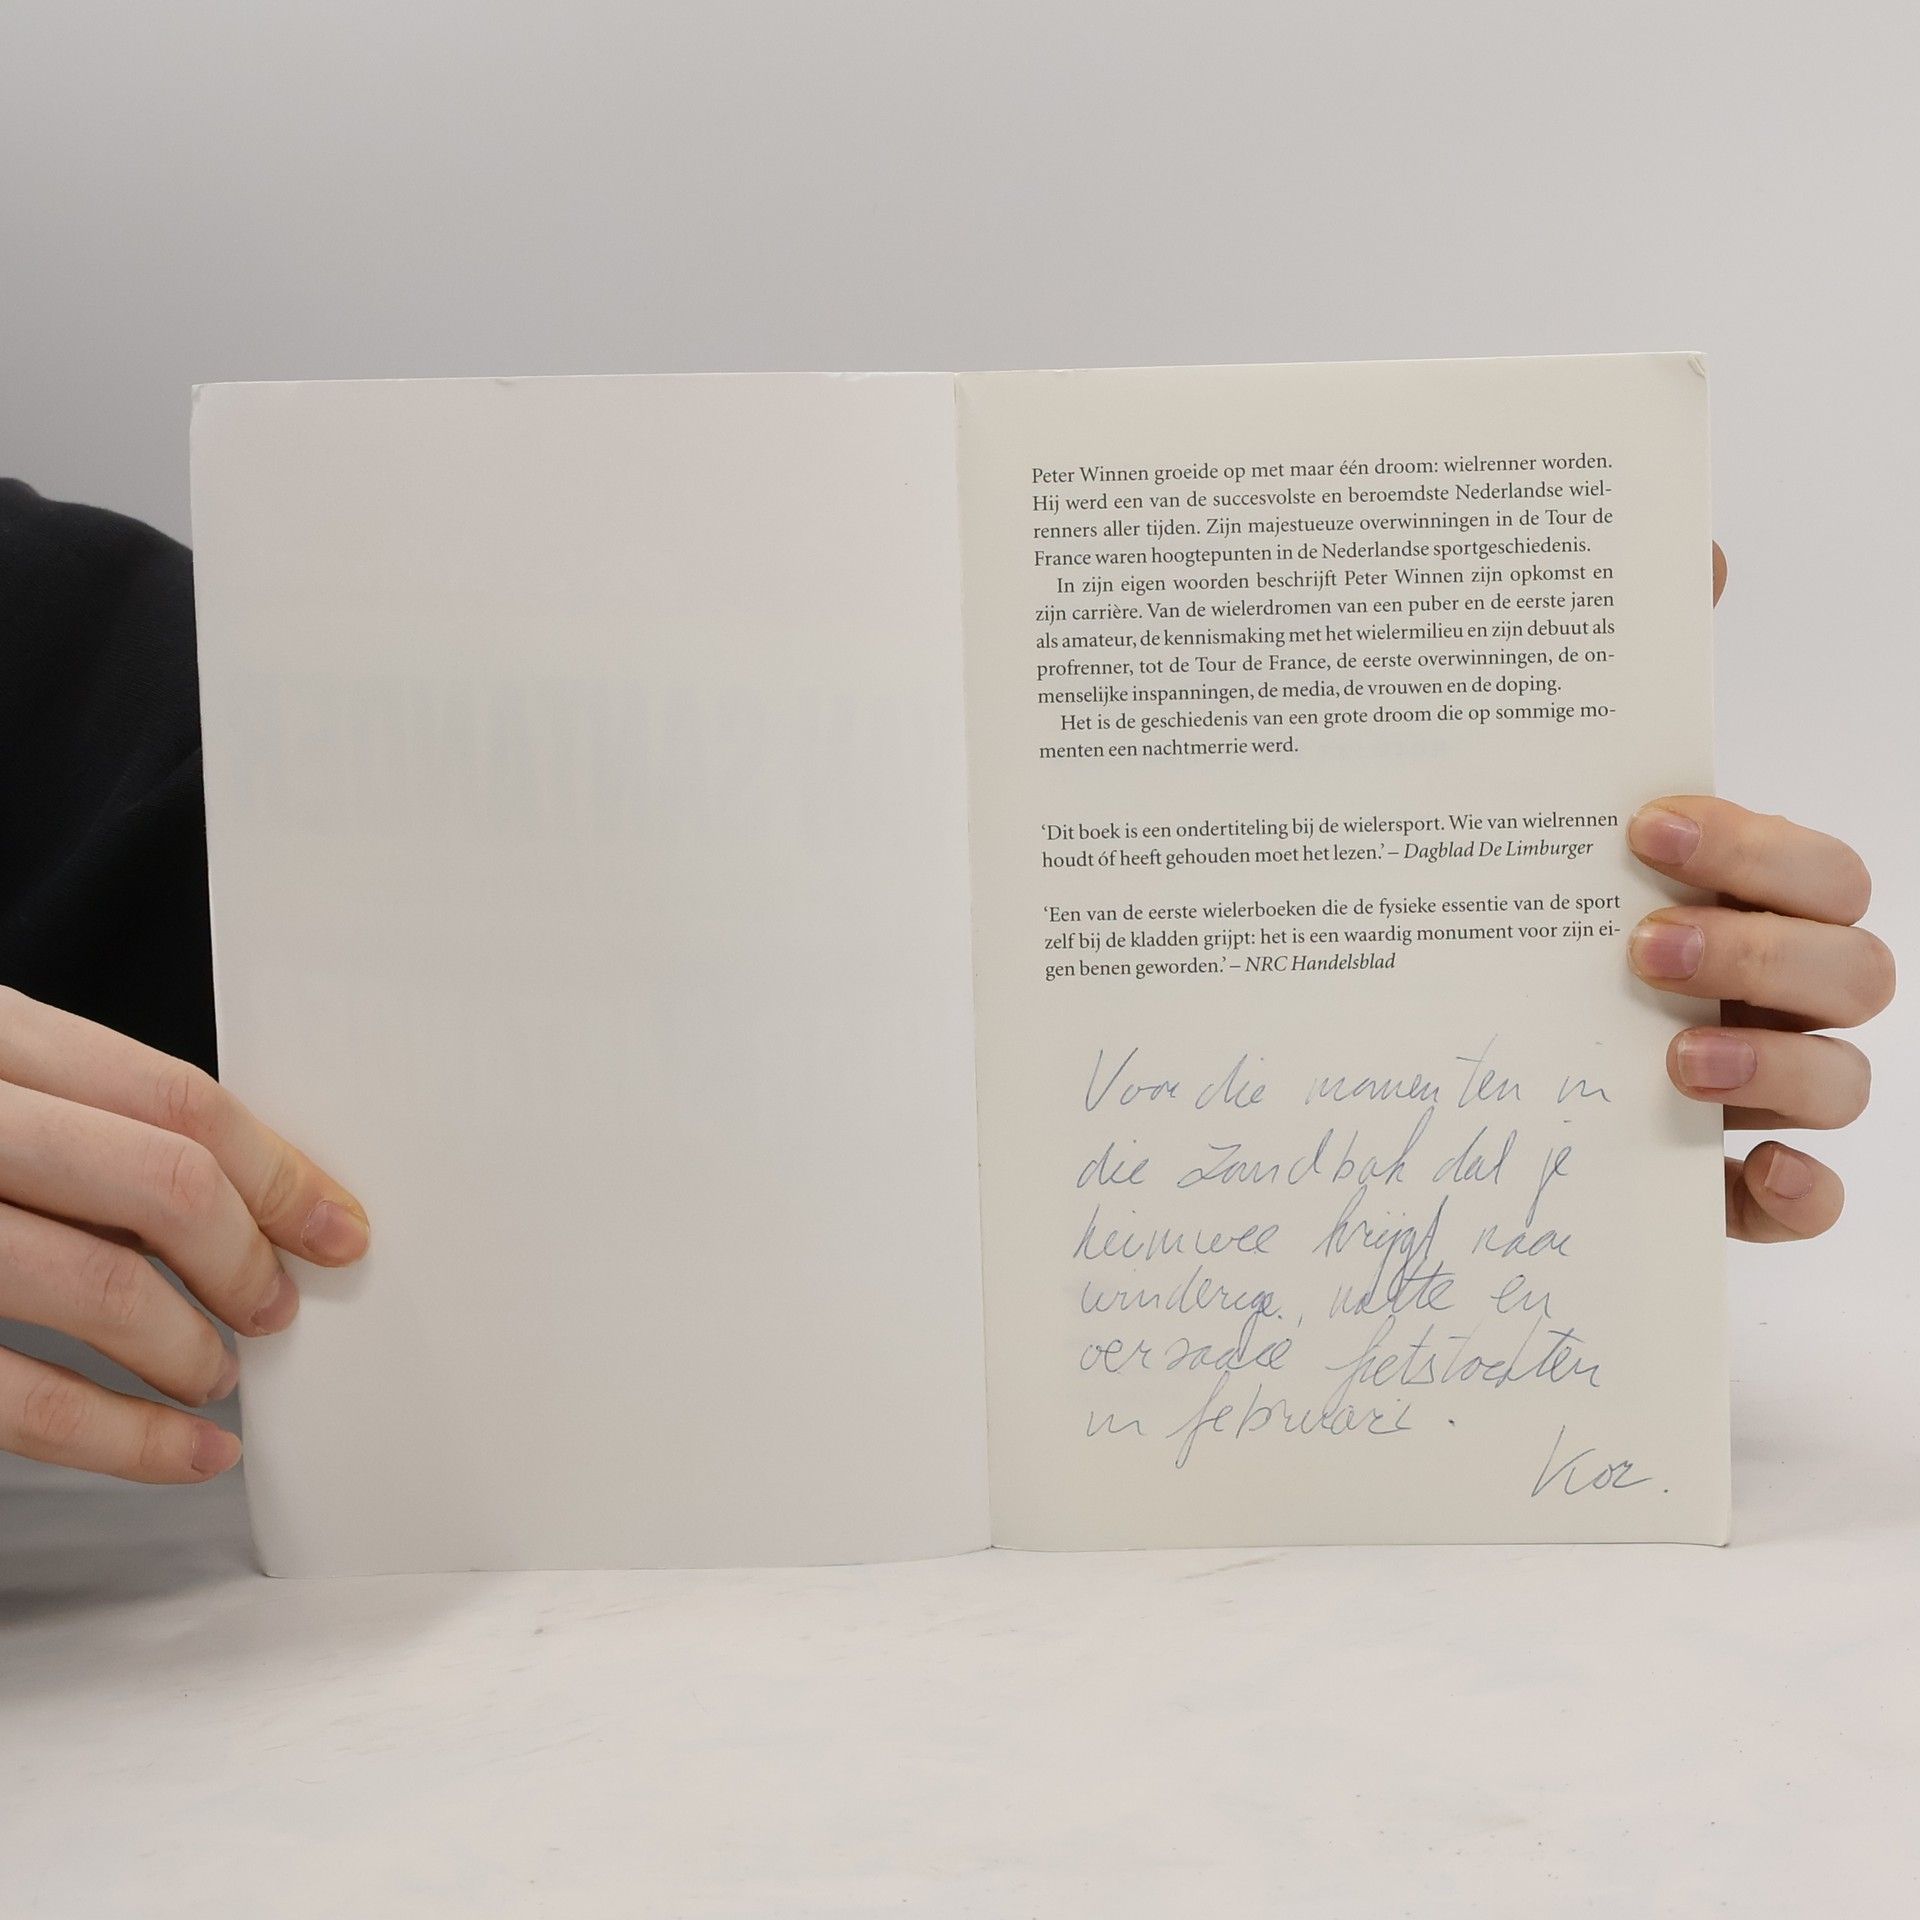 Peter Winnen groeide op met maar één droom: wielrenner worden.
Hij werd een van de succesvolste en beroemdste Nederlandse wiel-
renners aller tijden. Zijn majestueuze overwinningen in de Tour de
France waren hoogtepunten in de Nederlandse sportgeschiedenis.
In zijn eigen woorden beschrijft Peter Winnen zijn opkomst en
zijn carrière. Van de wielerdromen van een puber en de eerste jaren
als amateur, de kennismaking met het wielermilieu en zijn debuut als
profrenner, tot de Tour de France, de eerste overwinningen, de on-
menselijke inspanningen, de media, de vrouwen en de doping.
Het is de geschiedenis van een grote droom die op sommige mo-
menten een nachtmerrie werd.
‘Dit boek is een ondertiteling bij de wielersport. Wie van wielrennen
houdt óf heeft gehouden moet het lezen.’ – Dagblad De Limburger
‘Een van de eerste wielerboeken die de fysieke essentie van de sport
zelf bij de kladden grijpt: het is een waardig monument voor zijn ei-
gen benen geworden.’ – NRC Handelsblad
Voor die momenten in
die zandbak dat je
heimwee krijgt naar
winderige, natte en
fietstochten
in februari.